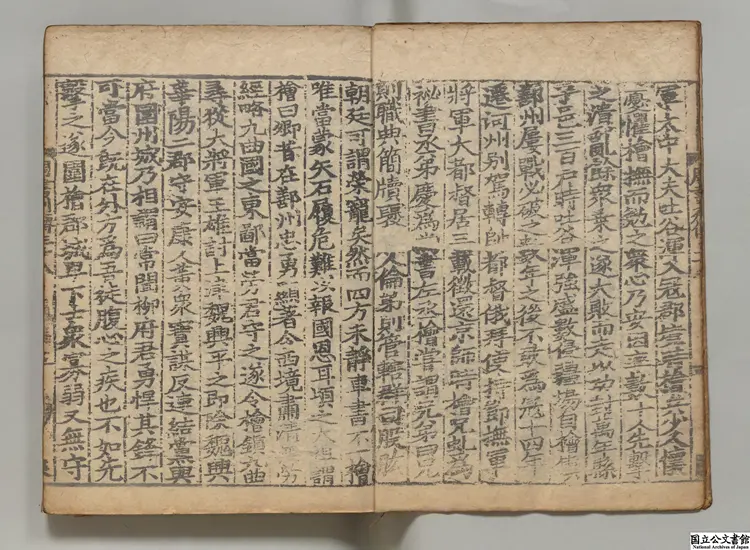 軍太中大夫吐谷渾入寇郡境時檜兵少人懷
憂懼檜撫而勉之衆心乃安因率數十人先擊
之潰亂餘衆乘之遂大敗而走以功封萬年縣
子邑三百戶時吐谷渾強盛數侵疆場自檜鎮
鄯州屢戰必破之數年之後不敢為寇十四年
遷河州別駕轉帥都督俄拜使持節撫軍
將軍大都督居三載徵還京師時檜兄虬為
秘書丞弟慶為尚書左丞檜嘗謂兄弟曰兄
則職典簡牘褒人倫弟則管轄群司股肱
朝廷可謂榮寵矣然而四方未靜車書不一檜
唯當蒙矢石履危難以報國恩耳頃之太祖謂
檜曰卿昔在鄯州忠勇顯著今西境肅清無勞
經略九曲國之東鄙當勞君守之遂令檜鎮九曲
尋從大將軍王雄討上津魏興平之即除魏興
華陽二郡守安康人黃衆寶謀反連結黨與
府圍州城乃相謂曰常聞柳府君勇悍其鋒不
可當今既在外方為吾徒腹心之疾也不如先
擊之遂圍檜郡城卑下士衆寡弱又無守
国立公文書館
National Archives of Japan